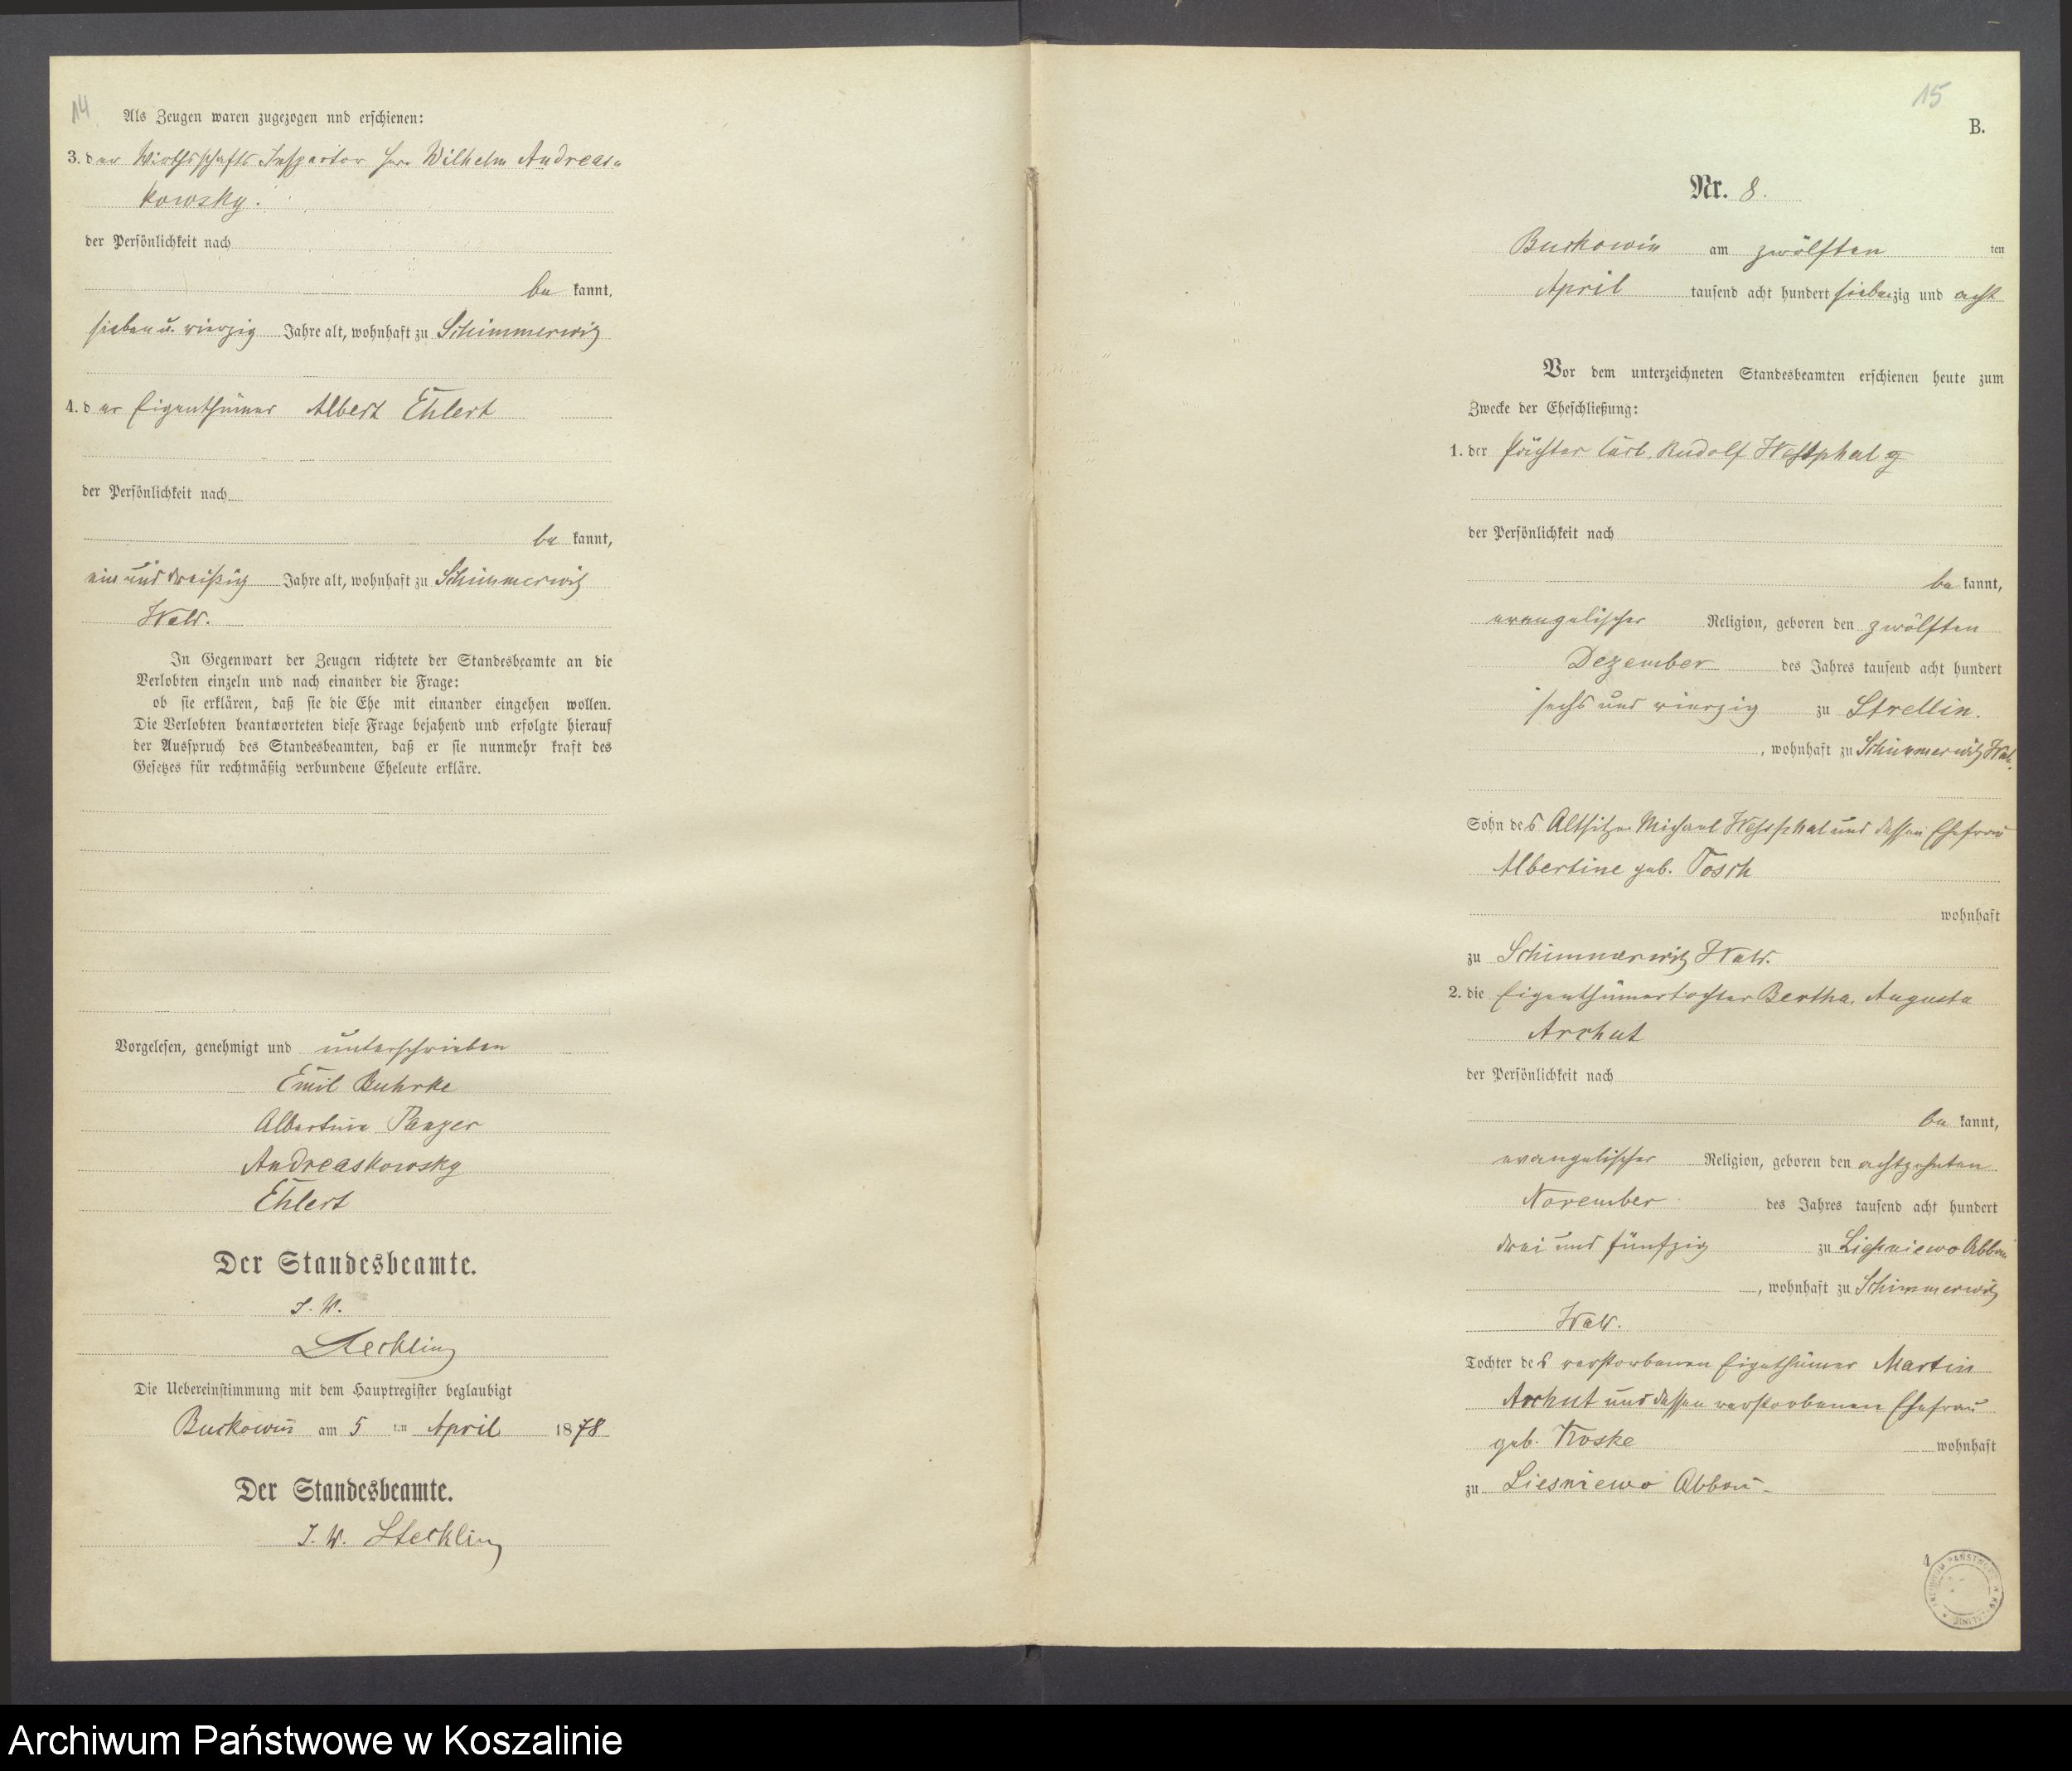 14
Als Zeugen waren zugezogen und erschienen:
3. der Wirthschafts Inspector Herr Wilhelm Andreas-
kowsky.
der Persönlichkeit nach
be kannt,
sieben u. vierzig Jahre alt, wohnhaft zu Schimmerwitz
4. der Eigenthümer Albert Ehlert
der Persönlichkeit nach
be kannt,
ein und dreißig Jahre alt, wohnhaft zu Schimmerwitz
Wald.
In Gegenwart der Zeugen richtete der Standesbeamte an die
Verlobten einzeln und nach einander die Frage:
ob sie erklären, daß sie die Ehe mit einander eingehen wollen.
Die Verlobten beantworteten diese Frage bejahend und erfolgte hierauf
der Ausspruch des Standesbeamten, daß er sie nunmehr kraft des
Gesetzes für rechtmäßig verbundene Eheleute erkläre.
Vorgelesen, genehmigt und unterschrieben
Emil Buhrke
Albertine Panzer
Andreaskowsky
Ehlert
Der Standesbeamte.
J. V.
Steckling
Die Uebereinstimmung mit dem Hauptregister beglaubigt
Buckowin am 5 ten April 1878
Der Standesbeamte.
J. V. Steckling
15
B.
Nr. 8.
Buckowin am zwölften ten
April tausend acht hundert siebenzig und acht
Vor dem unterzeichneten Standesbeamten erschienen heute zum
Zwecke der Eheschließung:
1. der Pächter Carl Rudolf Westphal
der Persönlichkeit nach
be kannt,
evangelischer Religion, geboren den zwölften
Dezember des Jahres tausend acht hundert
sechs und vierzig zu Strellin.
, wohnhaft zu Schimmerwitz Wald.
Sohn des Altsitzer Michael Westphal und dessen Ehefrau
Albertine geb. Tosch
wohnhaft
zu Schimmerwitz Wald.
2. die Eigenthümertochter Bertha, Auguste
Archut
der Persönlichkeit nach
be kannt,
evangelischer Religion, geboren den achtzehnten
November des Jahres tausend acht hundert
drei und fünfzig zu Liesniewo Abbau
, wohnhaft zu Schimmerwitz
Wald.
Tochter des verstorbenen Eigenthümer Martin
Archut und dessen verstorbenen Ehefrau
geb. Kroske wohnhaft
zu Liesniewo Abbau
4
Archiwum Państwowe w Koszalinie